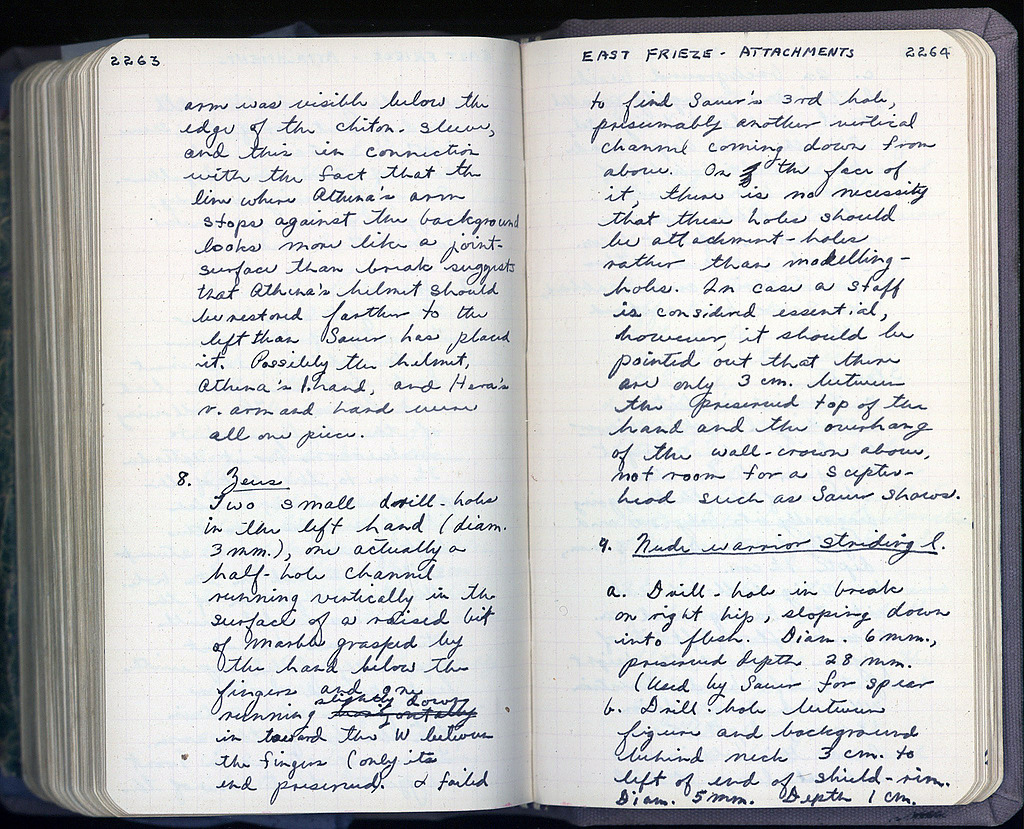 2263
arm was visible below the
edge of the chiton-sleeve,
and this in connection
with the fact that the
line where Athena's arm
stops against the background
looks more like a joint-
surface than break suggests
that Athena's helmet should
be restored farther to the
left than Sauer has placed
it. Possibly the helmet,
Athena's l. hand, and Hera's
r. arm and hand were
all one piece.
8. Zeus
Two small drill-holes
in the left hand (diam.
3 mm.), one actually a
half-hole channel
running vertically in the
surface of a raised bit
of marble grasped by
the hand below the
fingers and one
slightly down
running horizontally
in toward the W between
the fingers (only its
end preserved. I failed
EAST FRIEZE - ATTACHMENTS 2264
to find Sauer's 3rd hole,
presumably another vertical
channel coming down from
above. On the face of
it, there is no necessity
that these holes should
be attachment-holes
rather than modelling-
holes. In case a staff
is considered essential,
however, it should be
pointed out that there
are only 3 cm. between
the preserved top of the
hand and the overhang
of the wall-crown above,
not room for a scepter-
head such as Sauer shows.
9. Nude warrior striding l.
a. Drill-hole in break
on right hip, sloping down
into flesh. Diam. 6 mm.,
preserved depth 28 mm.
(Used by Sauer for spear
b. Drill-hole between
figure and background
behind neck 3 cm. to
left of end of shield-rim.
Diam. 5 mm. Depth 1 cm.